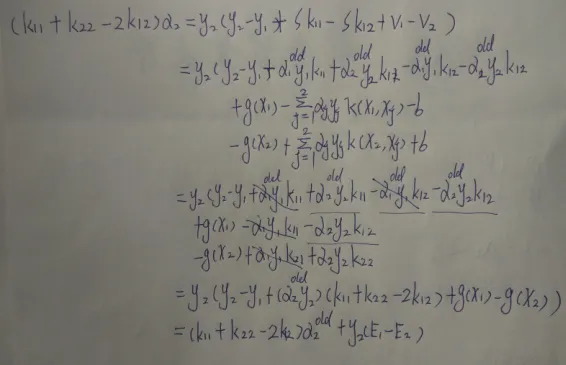 (k11 + k22 - 2k12)α2 = y2(y2 - y1 + Sk11 - Sk12 + V1 - V2)
= y2(y2 - y1 + α1^old y1 k11 + α2^old y2 k12 - α1^old y1 k12 - α2^old y2 k12
+ g(x1) - Σ_{j=1}^{2} αj yj k(x1, xj) - b
- g(x2) + Σ_{j=1}^{2} αj yj k(x2, xj) + b
= y2(y2 - y1 + α1^old y1 k11 + α2^old y2 k11 - α1^old y1 k12 - α2^old y2 k12
+ g(x1) - α1 y1 k11 - α2 y2 k12
- g(x2) + α1 y1 k21 + α2 y2 k22
= y2(y2 - y1 + (α2^old y2)(k11 + k22 - 2k12) + g(x1) - g(x2))
= (k11 + k22 - 2k12)α2^old + y2(E1 - E2)